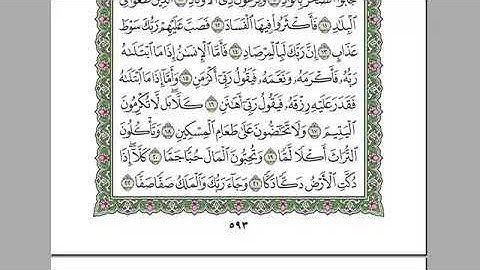 جَابُوا۟ ٱلصَّخْرَ بِٱلْوَادِ ۝٩ وَفِرْعَوْنَ ذِى ٱلْأَوْتَادِ ۝١٠ ٱلَّذِينَ طَغَوْا۟ فِى
ٱلْبِلَٰدِ ۝١١ فَأَكْثَرُوا۟ فِيهَا ٱلْفَسَادَ ۝١٢ فَصَبَّ عَلَيْهِمْ رَبُّكَ سَوْطَ
عَذَابٍ ۝١٣ إِنَّ رَبَّكَ لَبِٱلْمِرْصَادِ ۝١٤ فَأَمَّا ٱلْإِنسَٰنُ إِذَا مَا ٱبْتَلَىٰهُ
رَبُّهُۥ فَأَكْرَمَهُۥ وَنَعَّمَهُۥ فَيَقُولُ رَبِّىٓ أَكْرَمَنِ ۝١٥ وَأَمَّآ إِذَا مَا ٱبْتَلَىٰهُ
فَقَدَرَ عَلَيْهِ رِزْقَهُۥ فَيَقُولُ رَبِّىٓ أَهَٰنَنِ ۝١٦ كَلَّا ۖ بَل لَّا تُكْرِمُونَ
ٱلْيَتِيمَ ۝١٧ وَلَا تَحَٰٓضُّونَ عَلَىٰ طَعَامِ ٱلْمِسْكِينِ ۝١٨ وَتَأْكُلُونَ
ٱلتُّرَاثَ أَكْلًا لَّمًّا ۝١٩ وَتُحِبُّونَ ٱلْمَالَ حُبًّا جَمًّا ۝٢٠ كَلَّآ ۖ إِذَا
دُكَّتِ ٱلْأَرْضُ دَكًّا دَكًّا ۝٢١ وَجَآءَ رَبُّكَ وَٱلْمَلَكُ صَفًّا صَفًّا ۝٢٢
٥٩٣